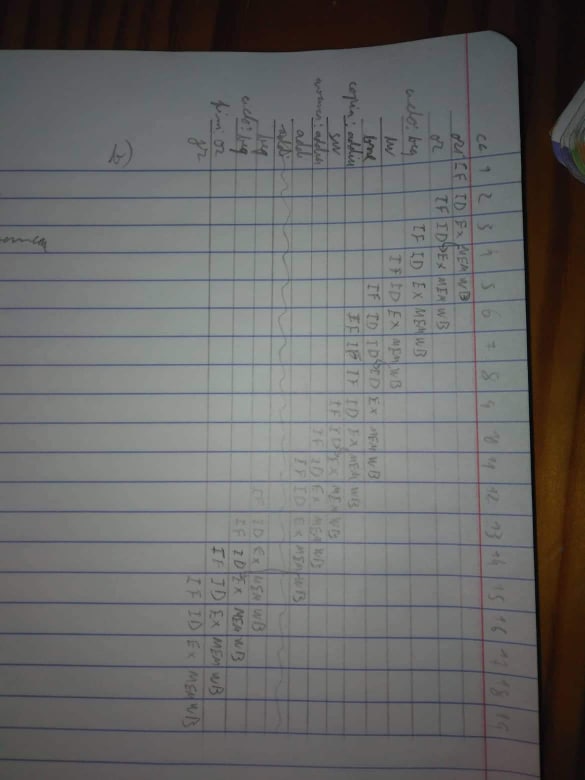 cc 1 2 3 4 5 6 7 8 9 10 11 12 13 14 15 16 17 18 19
ori IF ID EX MEM WB
or IF ID EX MEM WB
ciclo: beq IF ID EX MEM WB
lw IF ID EX MEM WB
bne IF ID ID ID EX MEM WB
copia: addiu IF IF IF ID EX MEM WB
sw IF ID EX MEM WB
addiu IF ID EX MEM WB
add IF ID EX MEM WB
addi
beq IF ID EX MEM WB
ciclo: beq IF ID EX MEM WB
fim: or IF ID EX MEM WB
jr IF ID EX MEM WB